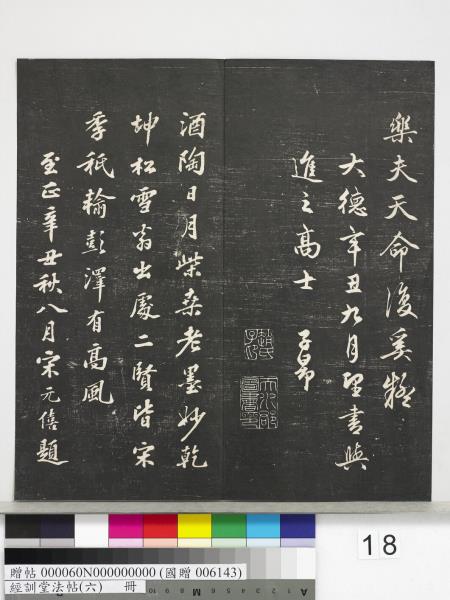 樂夫天命復奚疑
大德辛丑九月望書與
進之高士 子昂
趙氏子昂
酒陶日月柴桑老墨妙乾
坤松雪翁出處二賢皆宋
季祇輸彭澤有高風
至正辛丑秋八月宋元僖題
18
贈帖 000060N000000000 (國贈 006143)
經訓堂法帖(六) 冊